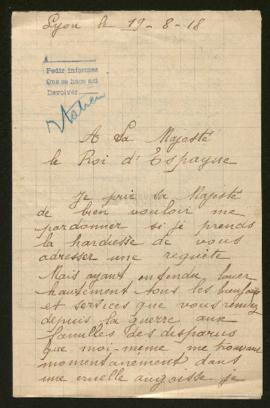 Lyon le 19-8-18
A
Pedir informes
Que se hace aqui
Devolver
A Sa Majesté
le Roi d'Espagne
Je prie sa Majesté
de bien vouloir me
pardonner si je prends
la hardiesse de vous
adresser une requête
Mais ayant entendu louer
hautement tous les bienfaits
et services que vous rendez
depuis la guerre aux
familles des disparus
que moi-même me trouvant
momentanément dans
une cruelle angoisse je